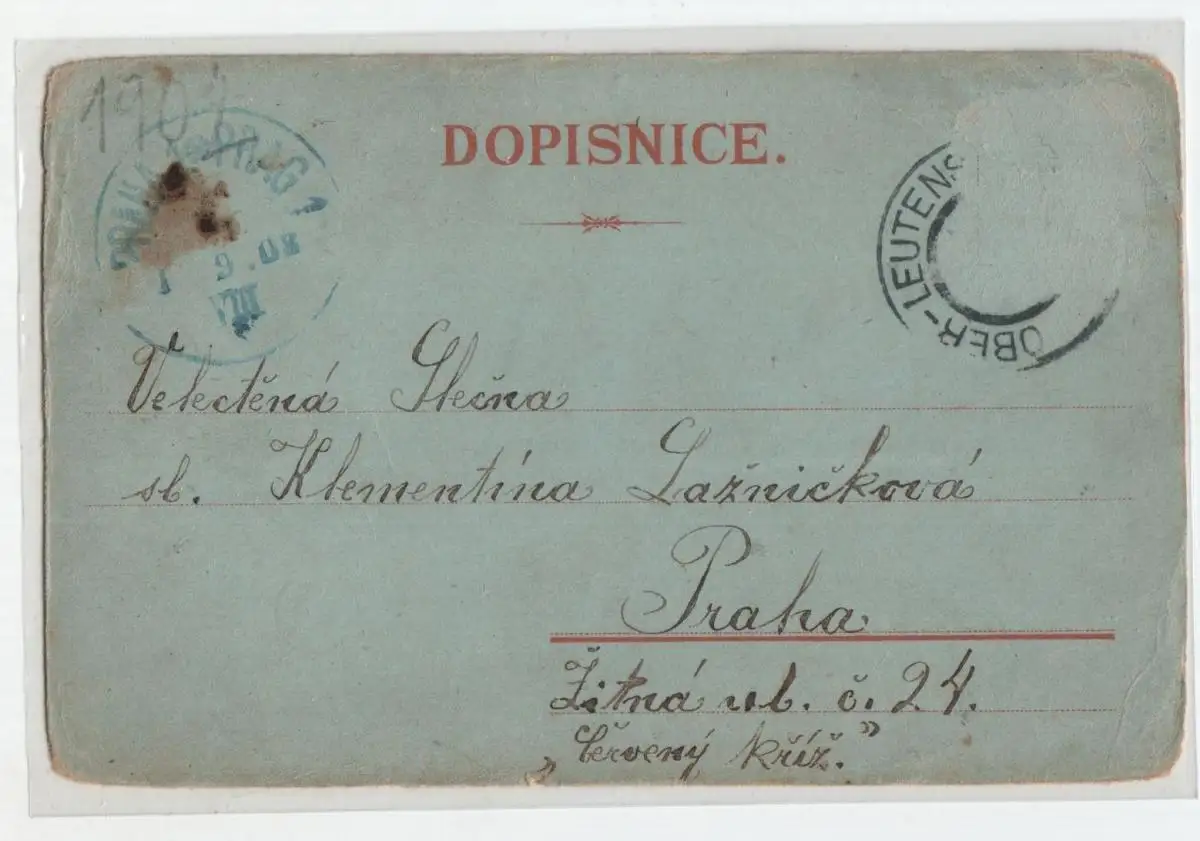 1904
DOPISNICE.
PRAHA PRAG 1
9.02
VIII
OBER-LEUTENS
Velectěná Slečna
sl. Klementína Lažničková
Praha
Žitná ul. č. 24.
„Červený kříž.”